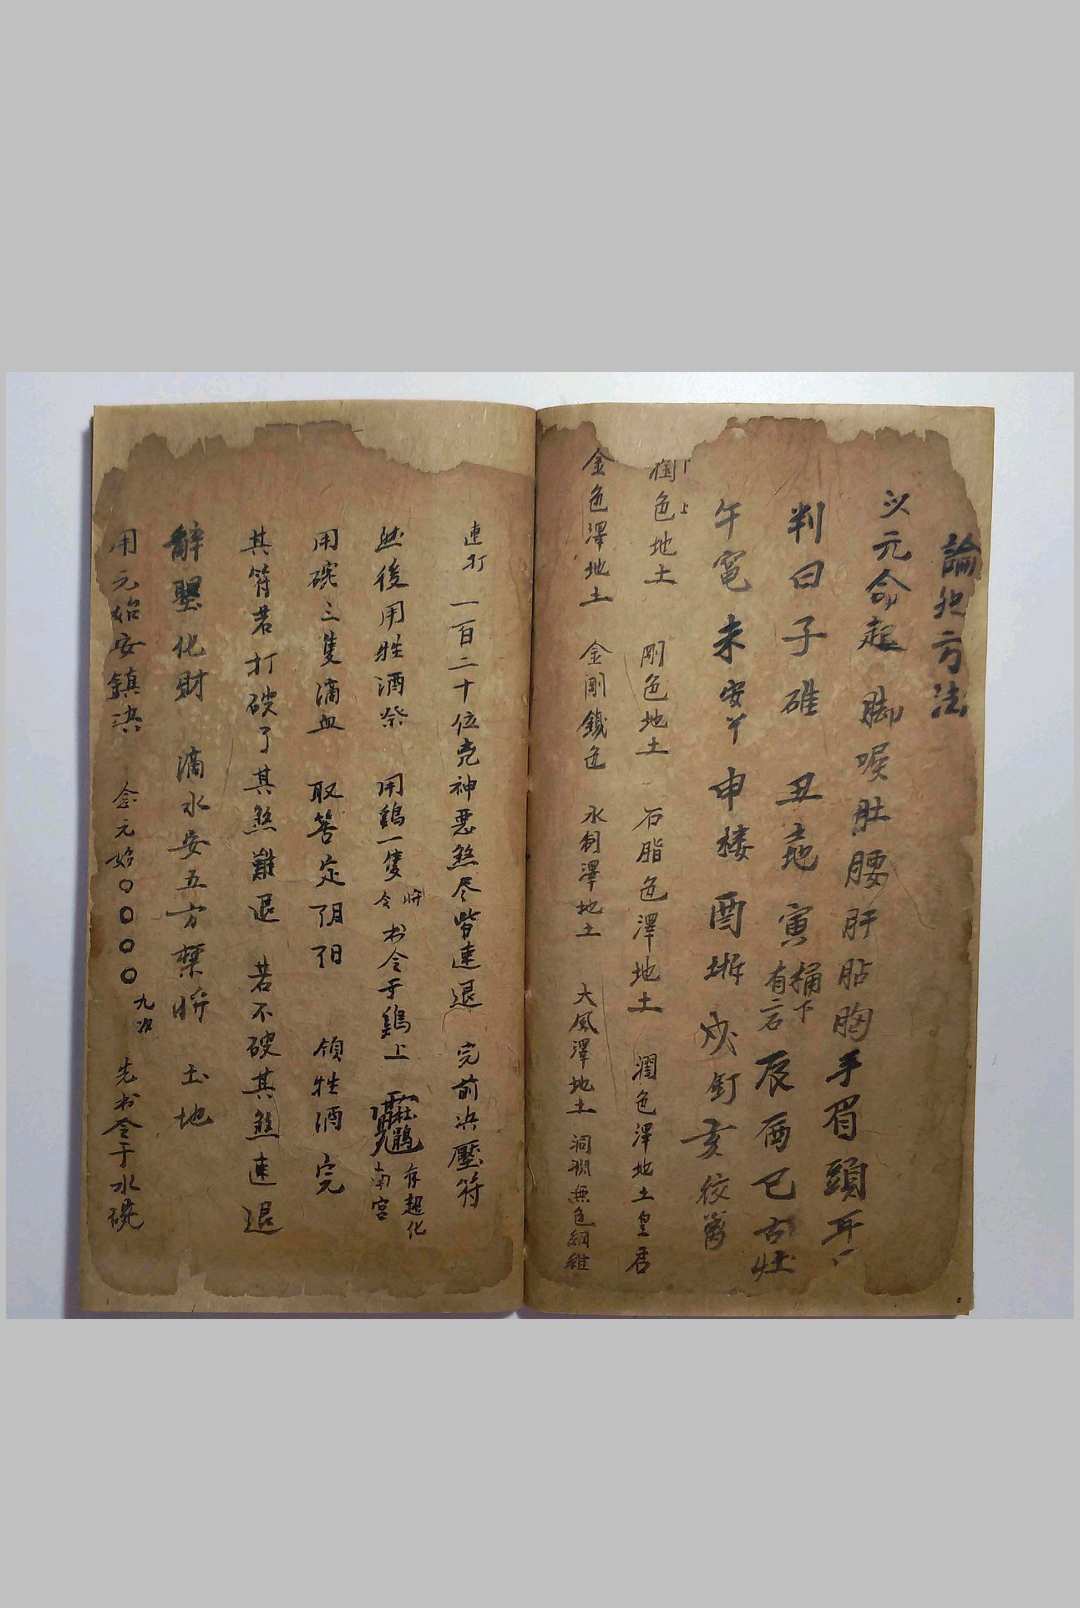 論犯方法
以元命起 脚喉肚腰肝胋胸手眉頭耳
判曰子碓 丑 寅 桶下 有言 辰酉巳古灶
午竃未安 申楼酉 戌釘亥
色地土 剛色地土 石脂色澤地土 潤色澤地土皇君
金色澤地土 金剛鉄色 水制澤地土 大風澤地土 洞淵無色網維
連打 一百二十位克神惡煞尽皆速退 完前决壓符
然後用牲酒祭 用鷄一隻 书令于鷄上 南宮
用碗三隻滴血 取筶定 領牲酒 完
其符若打破了其煞難退 若不破其煞速退
辭 化財 滴水安五方禁将 土地
用元始安鎮决 念元始〇〇〇〇 九次 先书令于水碗